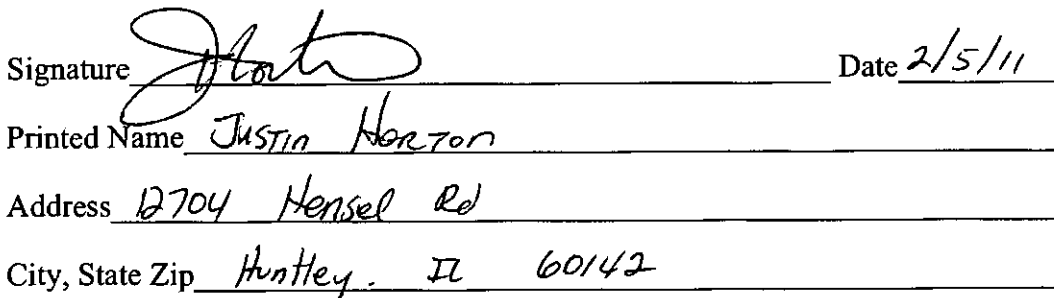 Signature JHorton Date 2/5/11
Printed Name Justin Horton
Address 12704 Hensel Rd
City, State Zip Huntley. IL 60142